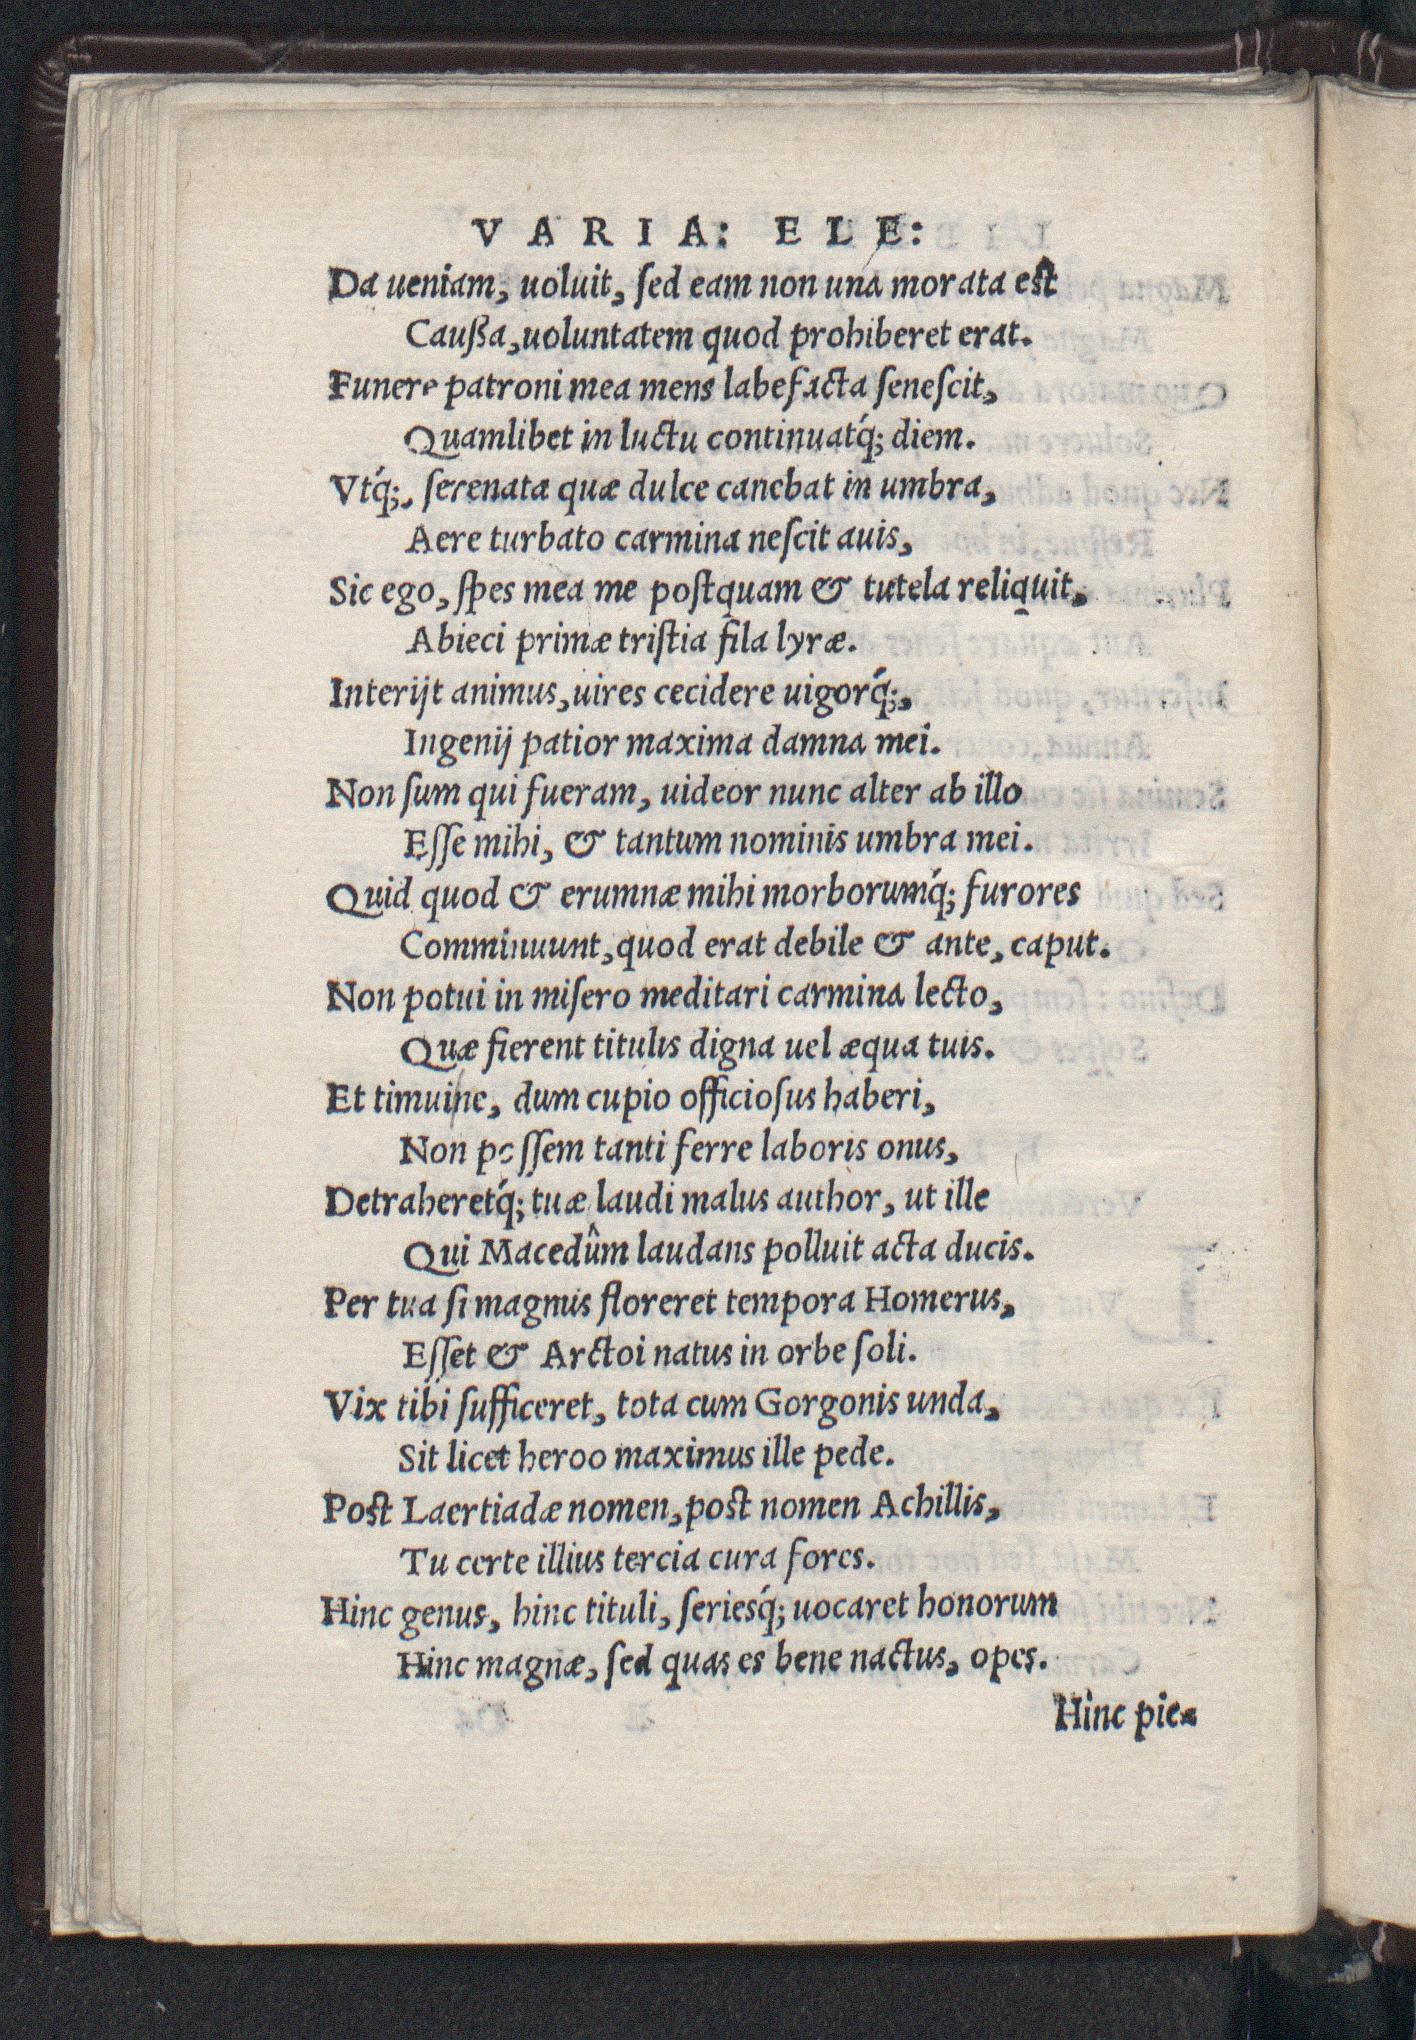 VARIA: ELE:
Da ueniam, uoluit, ſed eam non una morata est
Cauſſa, uoluntatem quod prohiberet erat.
Funere patroni mea mens labefacta ſeneſcit,
Quamlibet in luctu continuatq́; diem.
Vtq́;, ſerenata quæ dulce canebat in umbra,
Aere turbato carmina neſcit auis,
Sic ego, ſpes mea me poſtquam & tutela reliquit,
Abieci primæ triſtia fila lyræ.
Interijt animus, uires cecidere uigorq́;,
Ingenij patior maxima damna mei.
Non ſum qui fueram, uideor nunc alter ab illo
Eſſe mihi, & tantum nominis umbra mei.
Quid quod & erumnæ mihi morborumq́; furores
Comminuunt, quod erat debile & ante, caput.
Non potui in miſero meditari carmina lecto,
Quæ fierent titulis digna uel æqua tuis.
Et timuine, dum cupio officioſus haberi,
Non poſſem tanti ferre laboris onus,
Detraheretq́; tuæ laudi malus author, ut ille
Qui Macedûm laudans polluit acta ducis.
Per tua ſi magnus floreret tempora Homerus,
Eſſet & Arctoi natus in orbe ſoli.
Vix tibi ſufficeret, tota cum Gorgonis unda,
Sit licet heroo maximus ille pede.
Post Laertiadæ nomen, post nomen Achillis,
Tu certe illius tercia cura fores.
Hinc genus, hinc tituli, ſeriesq́; uocaret honorum
Hinc magnæ, ſed quas es bene nactus, opes.
Hinc pie-